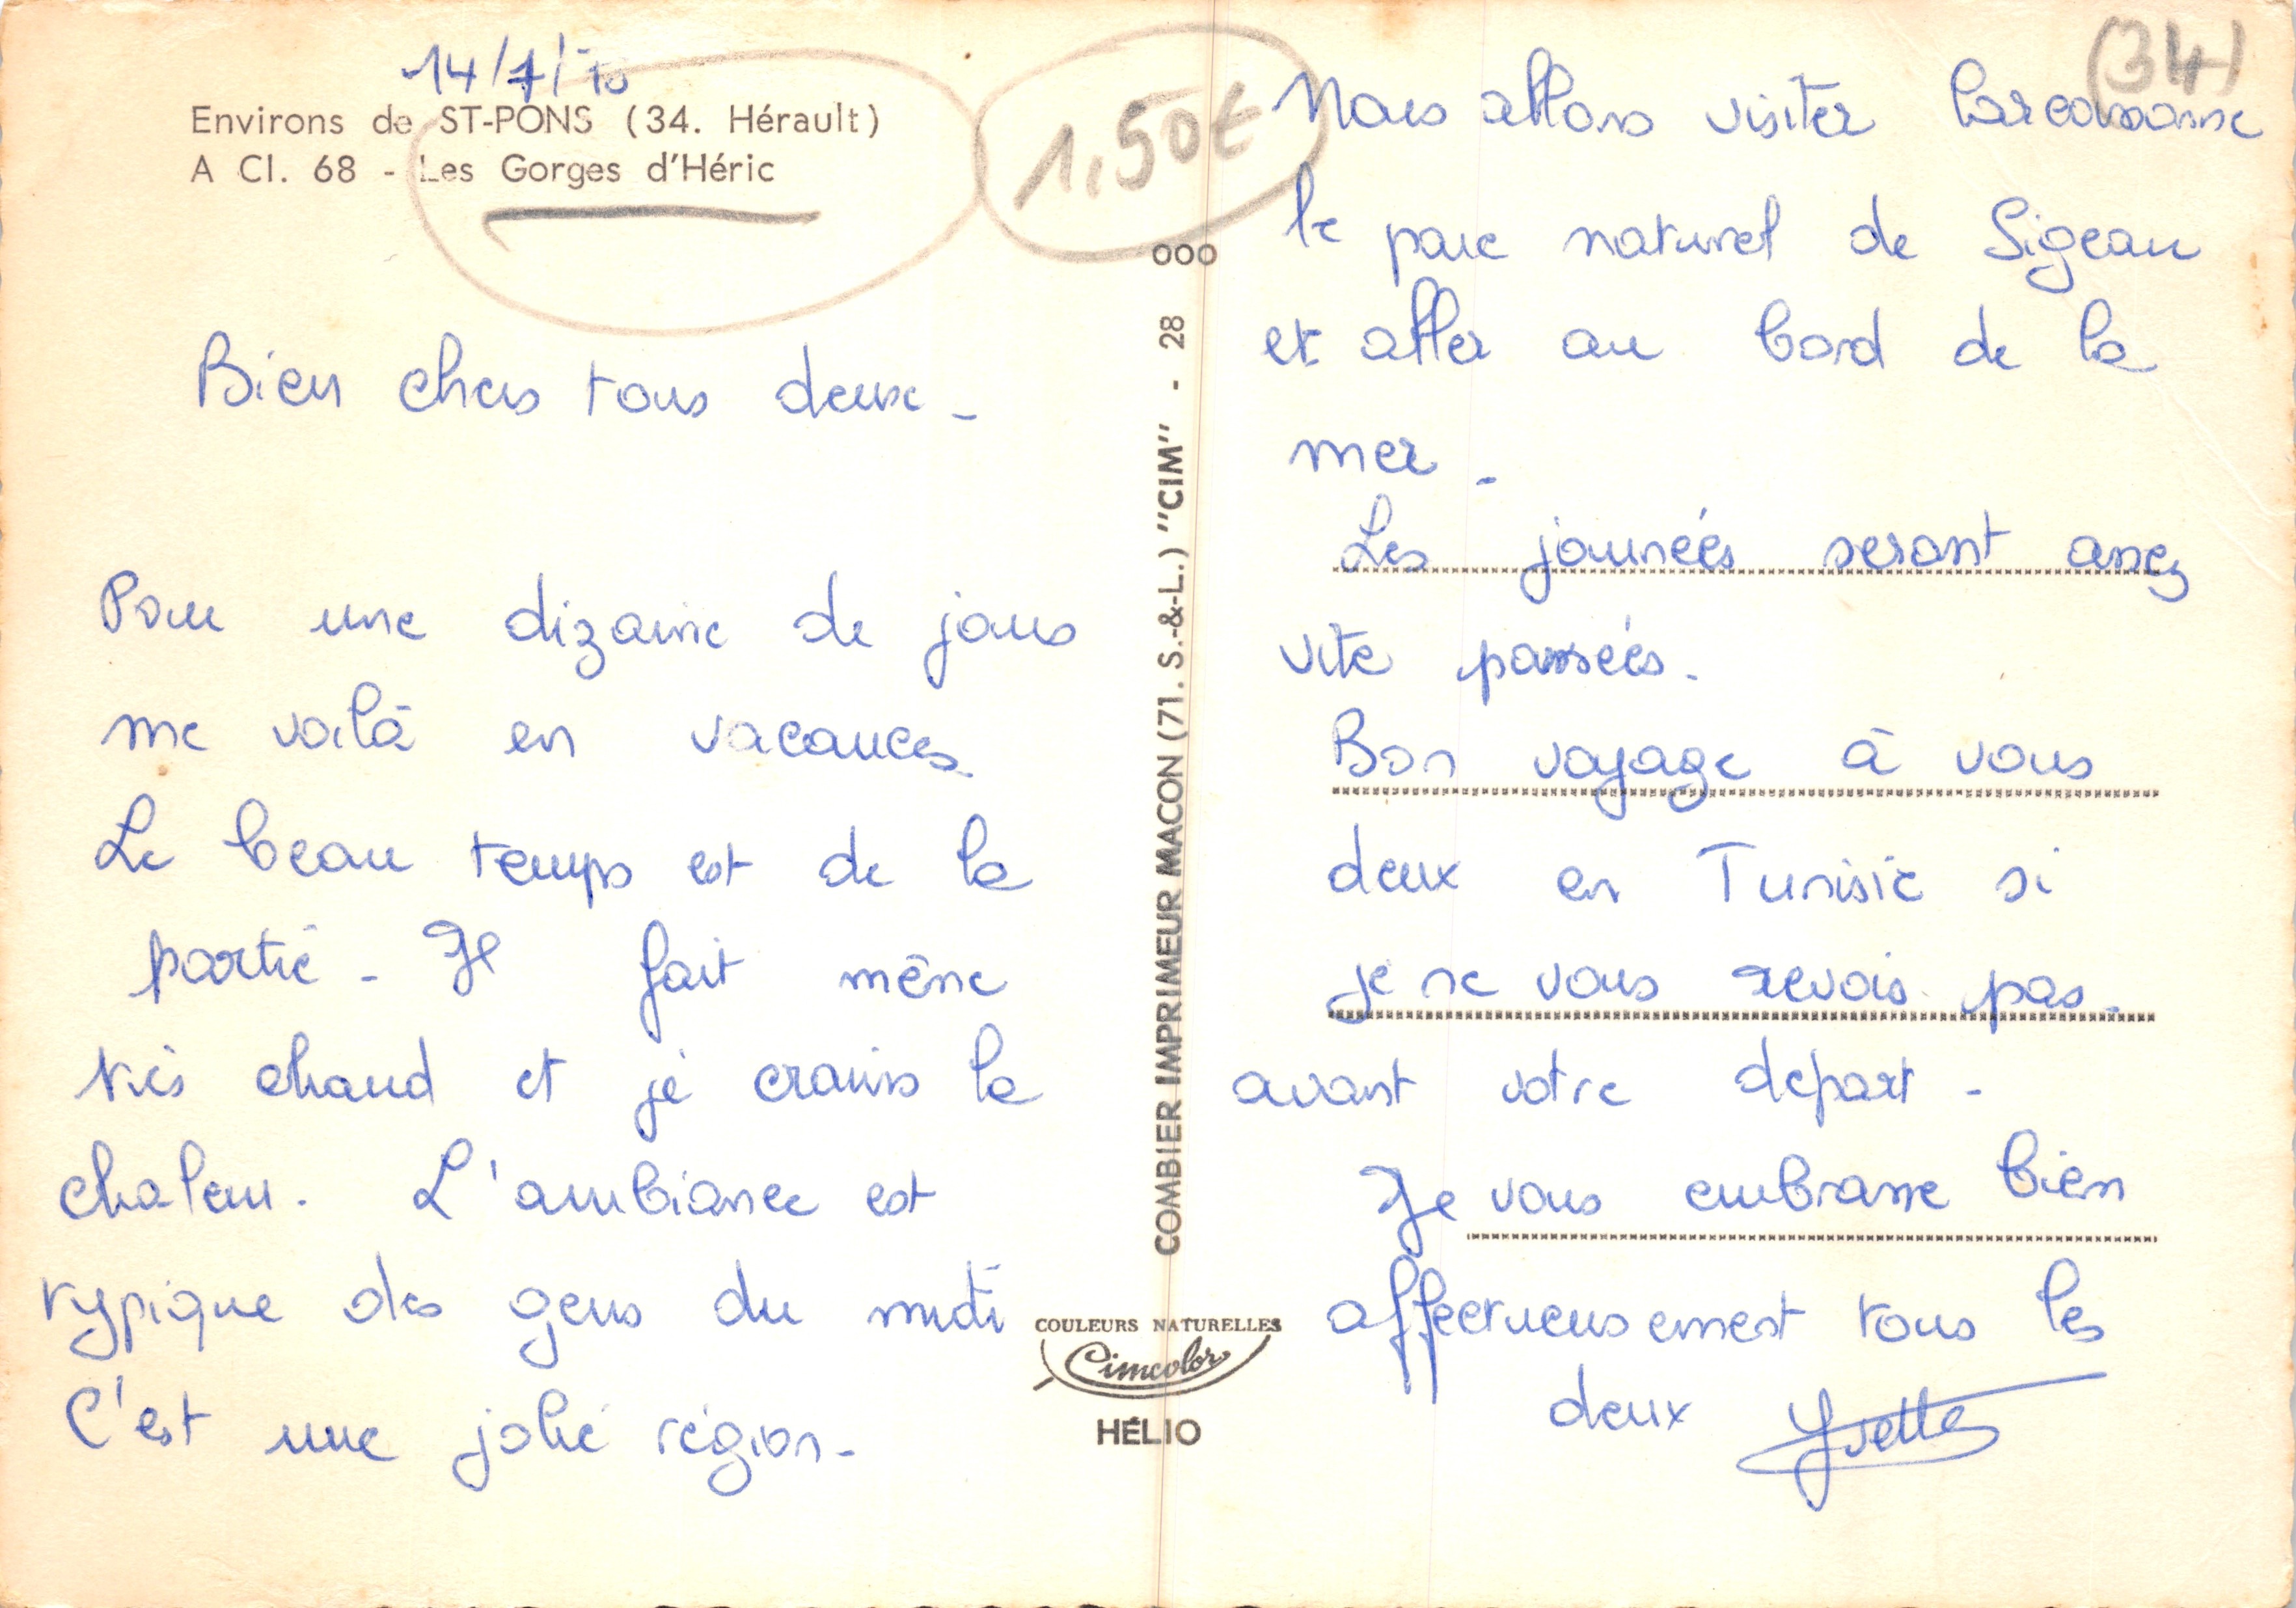 14/7/75
Environs de ST-PONS (34. Hérault)
A Cl. 68 - Les Gorges d'Héric
Bien chers tous deux -
Pour une dizaine de jours
me voilà en vacances.
Le beau temps est de la
partie - Il fait même
très chaud et je crains la
chaleur. L'ambiance est
typique des gens du midi
C'est une jolie région -
1,50€
ooo
COMBIER IMPRIMEUR MACON (71. S.-&-L.) "CIM" - 28
COULEURS NATURELLES
Cimcolor
HÉLIO
(34)
Nous allons visiter Carcassonne
le parc naturel de Sigean
et aller au bord de la
mer -
Les journées seront assez
vite passées.
Bon voyage à vous
deux en Tunisie si
je ne vous revois pas
avant votre départ -
Je vous embrasse bien
affectueusement tous les
deux Yvette